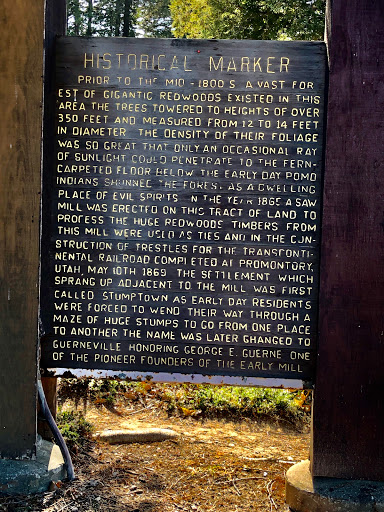 HISTORICAL MARKER
PRIOR TO THE MID - 1800'S A VAST FOR
EST OF GIGANTIC REDWOODS EXISTED IN THIS
AREA THE TREES TOWERED TO HEIGHTS OF OVER
350 FEET AND MEASURED FROM 12 TO 14 FEET
IN DIAMETER THE DENSITY OF THEIR FOLIAGE
WAS SO GREAT THAT ONLY AN OCCASIONAL RAY
OF SUNLIGHT COULD PENETRATE TO THE FERN-
CARPETED FLOOR BELOW THE EARLY DAY POMO
INDIANS SHUNNED THE FOREST AS A DWELLING
PLACE OF EVIL SPIRITS IN THE YEAR 1865 A SAW
MILL WAS ERECTED ON THIS TRACT OF LAND TO
PROCESS THE HUGE REDWOODS TIMBERS FROM
THIS MILL WERE USED AS TIES AND IN THE CON-
STRUCTION OF TRESTLES FOR THE TRANSCONTI-
NENTAL RAILROAD COMPLETED AT PROMONTORY,
UTAH, MAY 10TH 1869 THE SETTLEMENT WHICH
SPRANG UP ADJACENT TO THE MILL WAS FIRST
CALLED STUMPTOWN AS EARLY DAY RESIDENTS
WERE FORCED TO WEND THEIR WAY THROUGH A
MAZE OF HUGE STUMPS TO GO FROM ONE PLACE
TO ANOTHER THE NAME WAS LATER CHANGED TO
GUERNEVILLE HONORING GEORGE E. GUERNE ONE
OF THE PIONEER FOUNDERS OF THE EARLY MILL